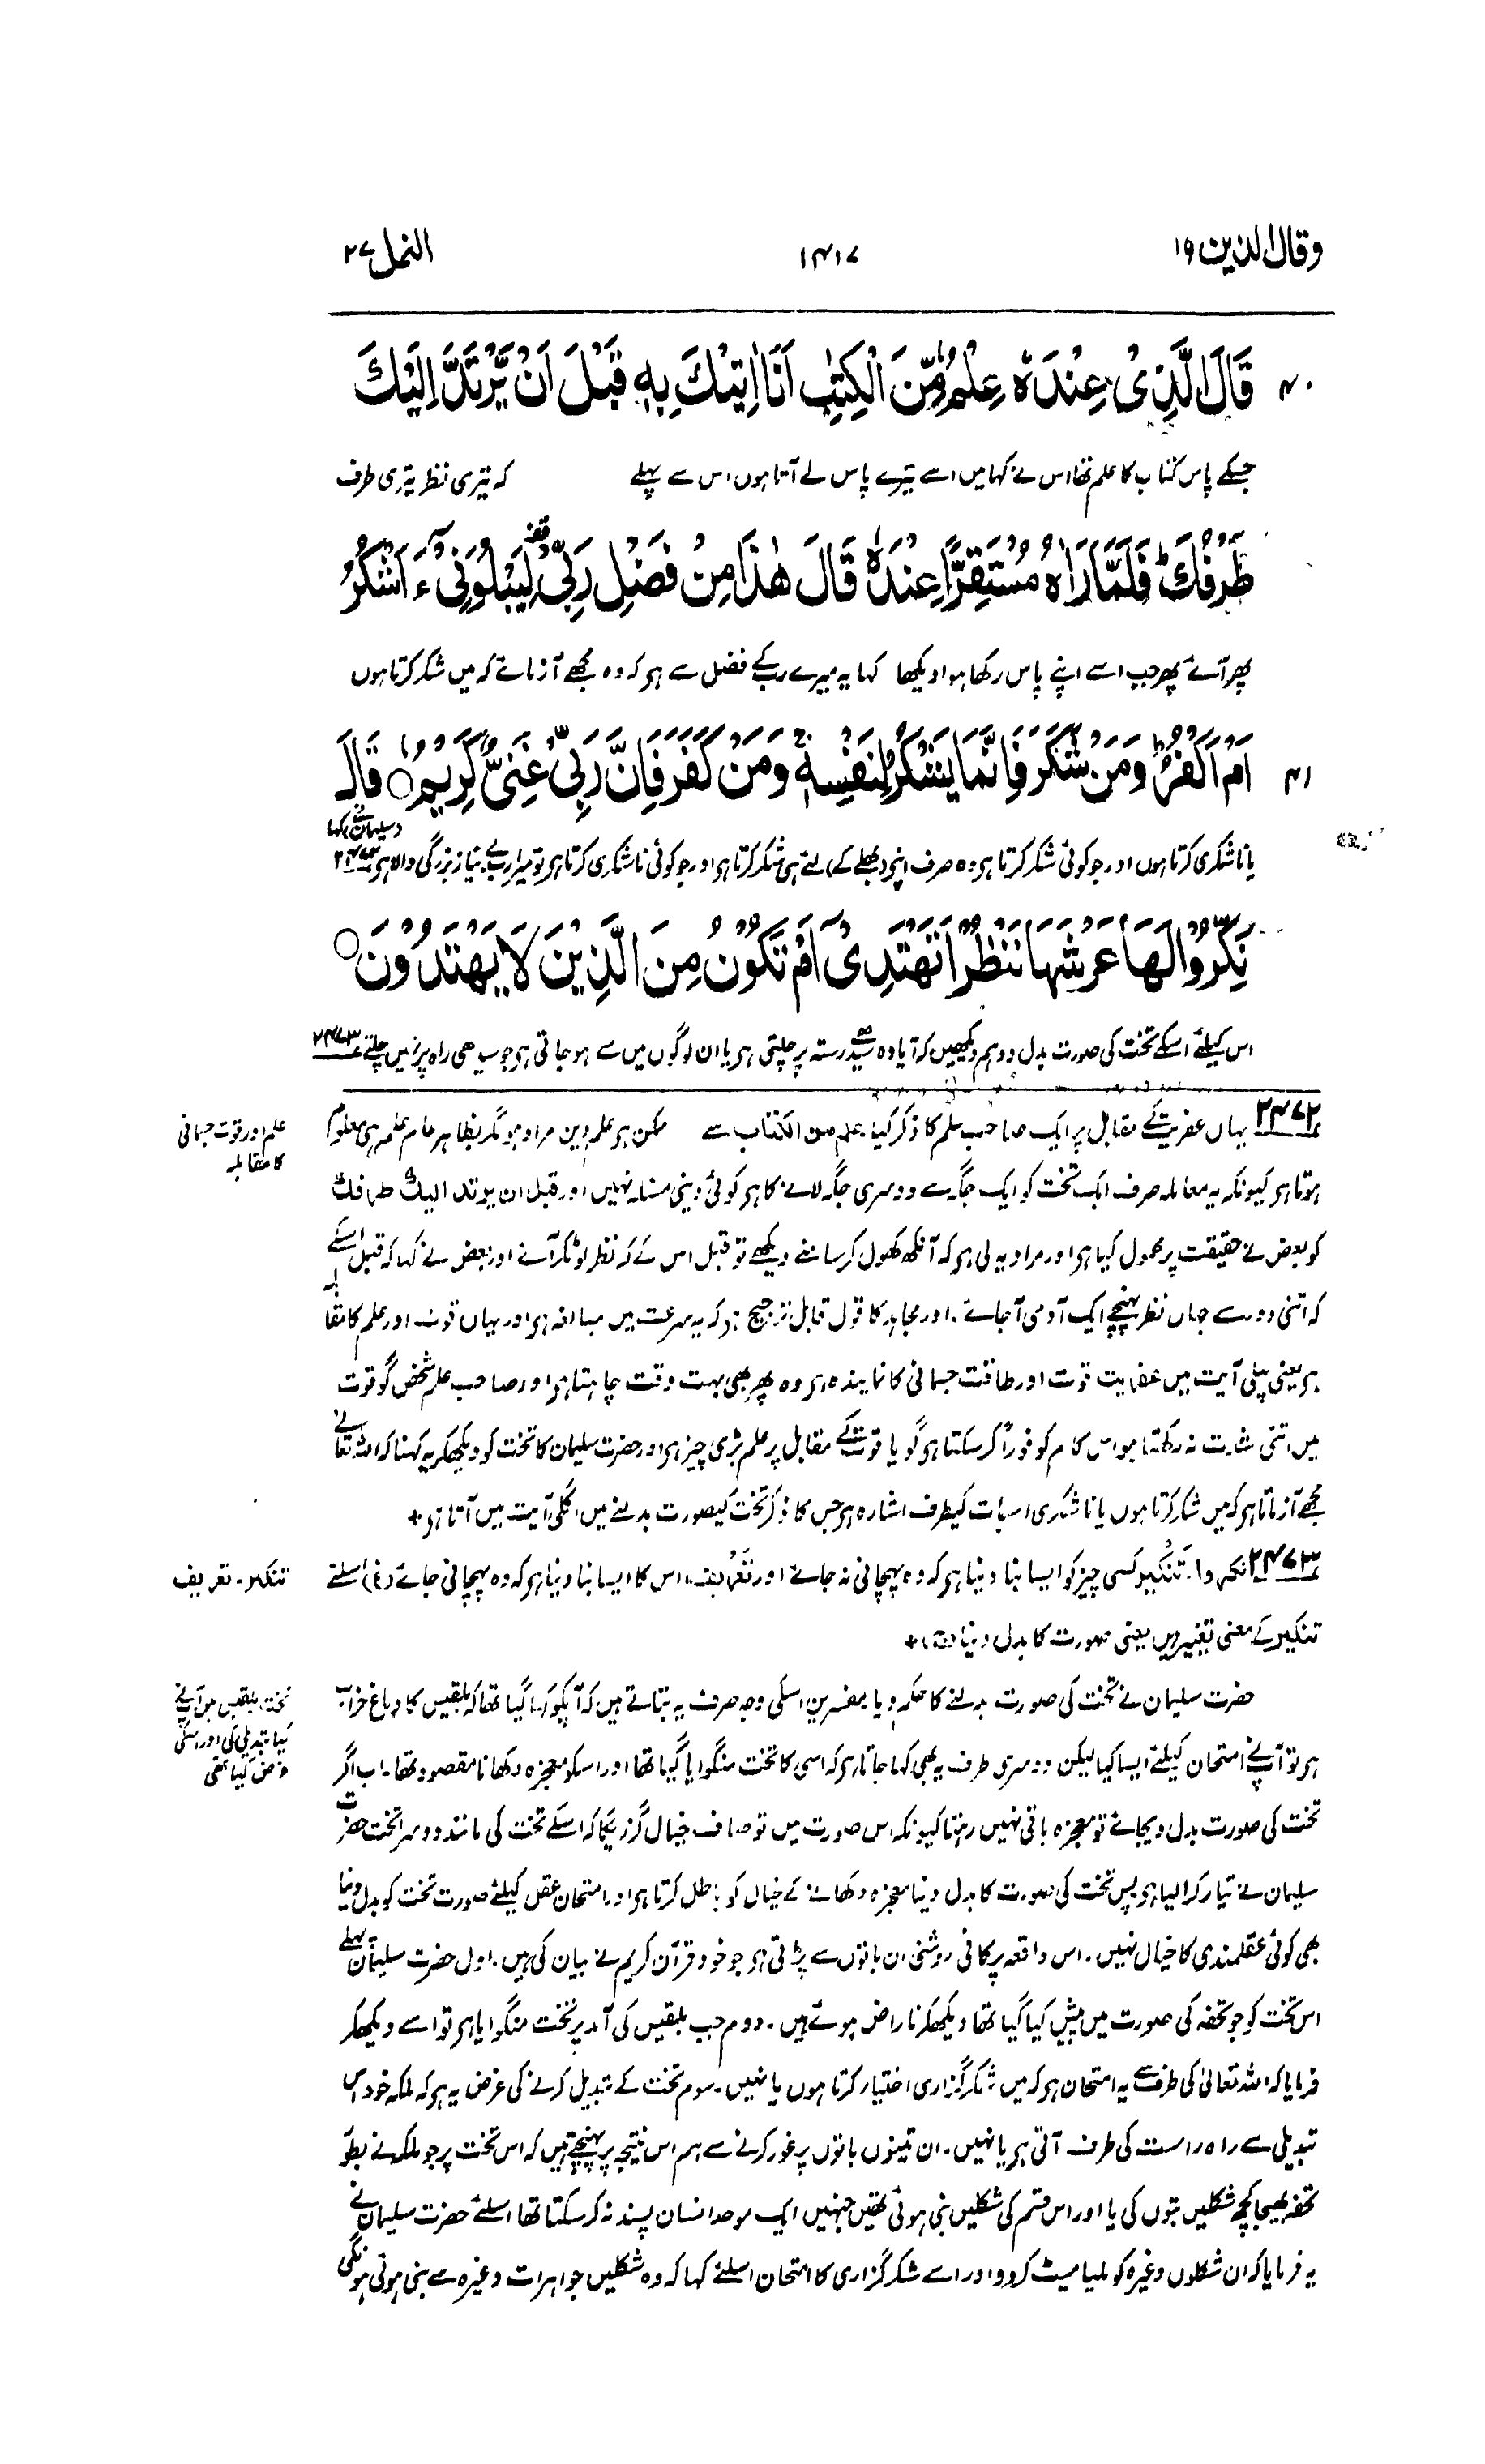 وقال الذین ۱۹
۱۴۱۷
النمل ۲۷
۴۰ قَالَ الَّذِیْ عِنْدَهٗ عِلْمٌ مِّنَ الْكِتٰبِ اَنَا اٰتِیْكَ بِهٖ قَبْلَ اَنْ یَّرْتَدَّ اِلَیْكَ
جسکے پاس کتاب کا علم تھا اس نے کہا میں اسے تیرے پاس لے آتا ہوں اس سے پہلے کہ تیری نظر تیری طرف
طَرْفُكَ ؕ فَلَمَّا رَاٰهُ مُسْتَقِرًّا عِنْدَهٗ قَالَ هٰذَا مِنْ فَضْلِ رَبِّیْ ۖقف لِیَبْلُوَنِیْۤ ءَاَشْكُرُ
پھر آئے پھر جب اسے اپنے پاس رکھا ہوا دیکھا کہا یہ میرے رب کے فضل سے ہو کہ وہ مجھے آزمائے کہ میں شکر کرتا ہوں
اَمْ اَكْفُرُ ؕ وَمَنْ شَكَرَ فَاِنَّمَا یَشْكُرُ لِنَفْسِهٖ ۚ وَمَنْ كَفَرَ فَاِنَّ رَبِّیْ غَنِیٌّ كَرِیْمٌ ○ قَالَ
۴۱
(سلیمان نے) کہا
یا ناشکری کرتا ہوں اور جو کوئی شکر کرتا ہو وہ صرف اپنے (بھلے کے) لئے ہی شکر کرتا ہو اور جو کوئی ناشکری کرتا ہو تو میرا رب بے نیاز بزرگی والا ہو ۲۴۷۲
نَكِّرُوْا لَهَا عَرْشَهَا نَنْظُرْ اَتَهْتَدِیْۤ اَمْ تَكُوْنُ مِنَ الَّذِیْنَ لَا یَهْتَدُوْنَ ○
اس کیلئے اسکے تخت کی صورت بدل دو ہم دیکھیں کہ آیا وہ سیدھے رستہ پر چلتی ہو یا ان لوگوں میں سے ہو جاتی ہو جو سیدھی راہ پر نہیں چلتے ۲۴۷۳
۲۴۷۲ یہاں عفریت کے مقابل پر ایک صاحب علم کا ذکر کیا علم من الکتاب سے ممکن ہو علم دین مراد ہو مگر بظاہر عام علم ہی معلوم
علم اور قوت جسمانی
کا مقابلہ
ہوتا ہو کیونکہ یہ معاملہ صرف ایک تخت کو ایک جگہ سے دوسری جگہ لانے کا ہو کوئی دینی مسئلہ نہیں اور قبل ان یرتد الیک طرفک
کو بعض نے حقیقت پر محمول کیا ہو اور مراد یہ لی ہو کہ آنکھ کھول کر سامنے دیکھے تو قبل اس کے کہ نظر لوٹ کر آئے اور بعض نے کہا کہ قبل اسکے
کہ اتنی دور سے جہاں نظر پہنچے ایک آدمی آجائے۔ اور مجاہد کا قول قابل ترجیح ہو کہ یہ سرعت میں مبالغہ ہو اور یہاں قوت اور علم کا مقابلہ
ہو یعنی پہلی آیت میں عفریت قوت اور طاقت جسمانی کا نمایندہ ہو وہ پھر بھی بہت وقت چاہتا ہو اور صاحب علم شخص گو قوت
میں اتنی شدت نہ رکھتا ہو اس کام کو فوراً کر سکتا ہو گویا قوت کے مقابل پر علم بڑی چیز ہو اور حضرت سلیمان کا تخت کو دیکھکر یہ کہنا کہ اللہ تعالیٰ نے
مجھے آزماتا ہو کہ میں شکر کرتا ہوں یا ناشکری اس بات کیطرف اشارہ ہو جس کا ذکر تخت کیصورت بدلنے میں اگلی آیت میں آتا ہو +
۲۴۷۳ نکروا۔ تَنْکِیر کسی چیز کو ایسا بنا دینا ہو کہ وہ پہچانی نہ جائے اور تَعْرِیف اس کا ایسا بنا دینا ہو کہ وہ پہچانی جائے (غ) اسلئے
تنکیر۔ تعریف
تنکیر کے معنی تغییر ہیں یعنی صورت کا بدل دینا +
حضرت سلیمان نے تخت کی صورت بدلنے کا حکم دیا مفسرین اسکی وجہ صرف یہ بتاتے ہیں کہ آپکو کہا گیا تھا کہ بلقیس کا دماغ خراب
تخت بلقیس میں آپ نے
کیا تبدیلی کی اور اسکی
غرض کیا تھی
ہو تو آپ نے امتحان کیلئے ایسا کیا لیکن دوسری طرف یہ بھی کہا جاتا ہو کہ اسی کا تخت منگوایا گیا تھا اور اسکو معجزہ دکھانا مقصود تھا۔ اب اگر
تخت کی صورت بدل دیجائے تو معجزہ باقی نہیں رہتا کیونکہ اس صورت میں تو صاف خیال گزریگا کہ اسکے تخت کی مانند دوسرا تخت حضرت
سلیمان نے تیار کرا لیا ہو پس تخت کی صورت کا بدل دینا معجزہ دکھانے کے خیال کو باطل کرتا ہو اور امتحان عقل کیلئے صورت تخت کو بدل دینا
بھی کوئی عقلمندی کا خیال نہیں۔ اس واقعہ پر کافی روشنی ان باتوں سے پڑتی ہو جو خود قرآن کریم نے بیان کی ہیں۔ اول حضرت سلیمان پہلے
اس تخت کو جو تحفہ کی صورت میں پیش کیا گیا تھا دیکھکر ناراض ہوئے ہیں۔ دوم جب بلقیس کی آمد پر تخت منگوایا ہو تو اسے دیکھکر
فرمایا کہ اللہ تعالیٰ کی طرف سے یہ امتحان ہو کہ میں شکر گزاری اختیار کرتا ہوں یا نہیں۔ سوم تخت کے تبدیل کرنے کی غرض یہ ہو کہ ملکہ خود اس
تبدیلی سے راہ راست کی طرف آتی ہو یا نہیں۔ ان تینوں باتوں پر غور کرنے سے ہم اس نتیجہ پر پہنچتے ہیں کہ اس تخت پر جو ملکہ نے بطور
تحفہ بھیجا کچھ شکلیں بتوں کی یا اور اس قسم کی شکلیں بنی ہوئی تھیں جنہیں ایک موحد انسان پسند نہ کر سکتا تھا اسلئے حضرت سلیمان نے
یہ فرمایا کہ ان شکلوں وغیرہ کو ملیامیٹ کر دو اور اسے شکر گزاری کا امتحان اسلئے کہا کہ وہ شکلیں جواہرات وغیرہ سے بنی ہوئی ہونگی